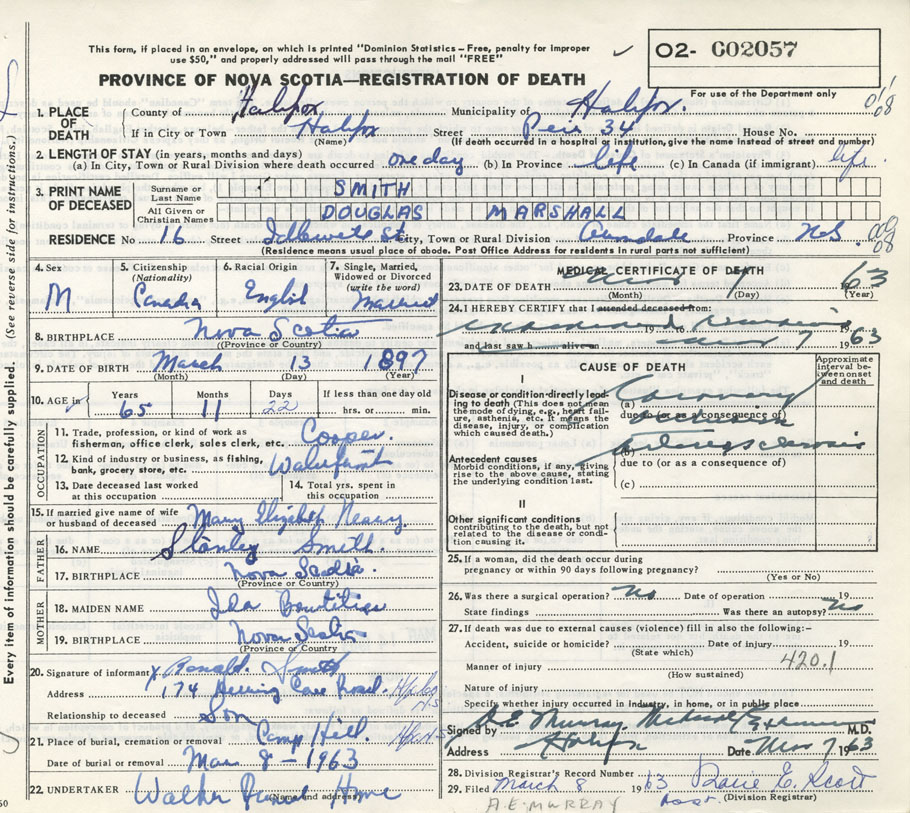 This form, if placed in an envelope, on which is printed "Dominion Statistics – Free, penalty for improper
use $50," and properly addressed will pass through the mail "FREE"
O2- G02057
PROVINCE OF NOVA SCOTIA—REGISTRATION OF DEATH
For use of the Department only
1. PLACE OF DEATH County of Halifax Municipality of Halifax.
If in City or Town Halifax Street Pier 34 House No.
(Name) (If death occurred in a hospital or institution, give the name instead of street and number)
2. LENGTH OF STAY (in years, months and days)
(a) In City, Town or Rural Division where death occurred one day (b) In Province life (c) In Canada (if immigrant) life.
3. PRINT NAME OF DECEASED Surname or Last Name SMITH
All Given or Christian Names DOUGLAS MARSHALL
RESIDENCE No 16 Street St City, Town or Rural Division Armdale Province N.S.
(Residence means usual place of abode. Post Office Address for residents in rural parts not sufficient)
4. Sex M
5. Citizenship (Nationality) Canada
6. Racial Origin English
7. Single, Married, Widowed or Divorced (write the word) Married
8. BIRTHPLACE Nova Scotia
(Province or Country)
9. DATE OF BIRTH March 13 1897
(Month) (Day) (Year)
10. AGE in Years 65 Months 11 Days 22 If less than one day old hrs. or min.
OCCUPATION
11. Trade, profession, or kind of work as fisherman, office clerk, sales clerk, etc. Cooper.
12. Kind of industry or business, as fishing, bank, grocery store, etc. Waterfront
13. Date deceased last worked at this occupation
14. Total yrs. spent in this occupation
15. If married give name of wife or husband of deceased Mary Elizabeth Neary.
FATHER
16. NAME Stanley Smith.
17. BIRTHPLACE Nova Scotia.
(Province or Country)
MOTHER
18. MAIDEN NAME Ida
19. BIRTHPLACE Nova Scotia
(Province or Country)
20. Signature of informant x Ronald Smith
Address 174 Cove Road. Halifax N.S.
Relationship to deceased Son
21. Place of burial, cremation or removal Camp Hill. Hfx N.S
Date of burial or removal Mar 8 - 1963
22. UNDERTAKER Walker Funeral Home
(Name and address)
MEDICAL CERTIFICATE OF DEATH
23. DATE OF DEATH Mar 7 63
(Month) (Day) (Year)
24. I HEREBY CERTIFY that I attended deceased from:
examined 19 to remains 19
and last saw h alive on Mar 7 1963
CAUSE OF DEATH
Approximate interval between onset and death
I
Disease or condition directly leading to death (This does not mean the mode of dying, e.g., heart failure, asthenia, etc. It means the disease, injury, or complication which caused death.)
(a) Coronary occlusion
due to (or as a consequence of)
Antecedent causes
Morbid conditions, if any, giving rise to the above cause, stating the underlying condition last.
(b) arteriosclerosis
due to (or as a consequence of)
(c)
II
Other significant conditions
contributing to the death, but not related to the disease or condition causing it
25. If a woman, did the death occur during pregnancy or within 90 days following pregnancy?
(Yes or No)
26. Was there a surgical operation? No Date of operation 19
State findings Was there an autopsy? No
27. If death was due to external causes (violence) fill in also the following:-
Accident, suicide or homicide? Date of injury 19
(State which)
Manner of injury 420.1
(How sustained)
Nature of injury
Specify whether injury occurred in industry, in home, or in public place
Signed by A E Murray Medical Examiner M.D.
Address Halifax Date Mar 7 1963
28. Division Registrar's Record Number
29. Filed March 8 1963 E. Scott
Asst. (Division Registrar)
A.E. MURRAY
Every item of information should be carefully supplied. (See reverse side for instructions.)